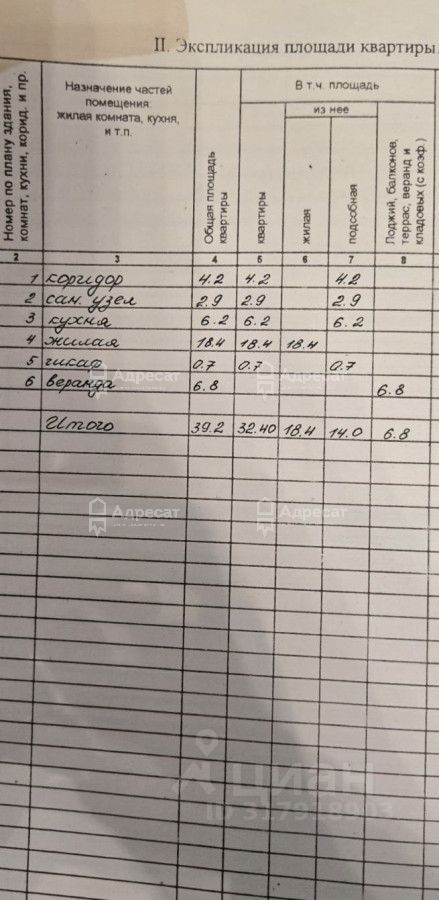 II. Экспликация площади квартиры.
Номер по плану здания,
комнат, кухни, корид. и пр.
Назначение частей
помещения:
жилая комната, кухня,
и т.п.
Общая площадь
квартиры
В т.ч. площадь
квартиры
из нее
жилая
подсобная
Лоджий, балконов,
террас, веранд и
кладовых (с коэф.)
2 3 4 5 6 7 8
1 коридор 4.2 4.2 4.2
2 сан. узел 2.9 2.9 2.9
3 кухня 6.2 6.2 6.2
4 жилая 18.4 18.4 18.4
5 шкаф 0.7 0.7 0.7
6 веранда 6.8 6.8
Итого 39.2 32.40 18.4 14.0 6.8
Адресат Адресат
Адресат Адресат
циан